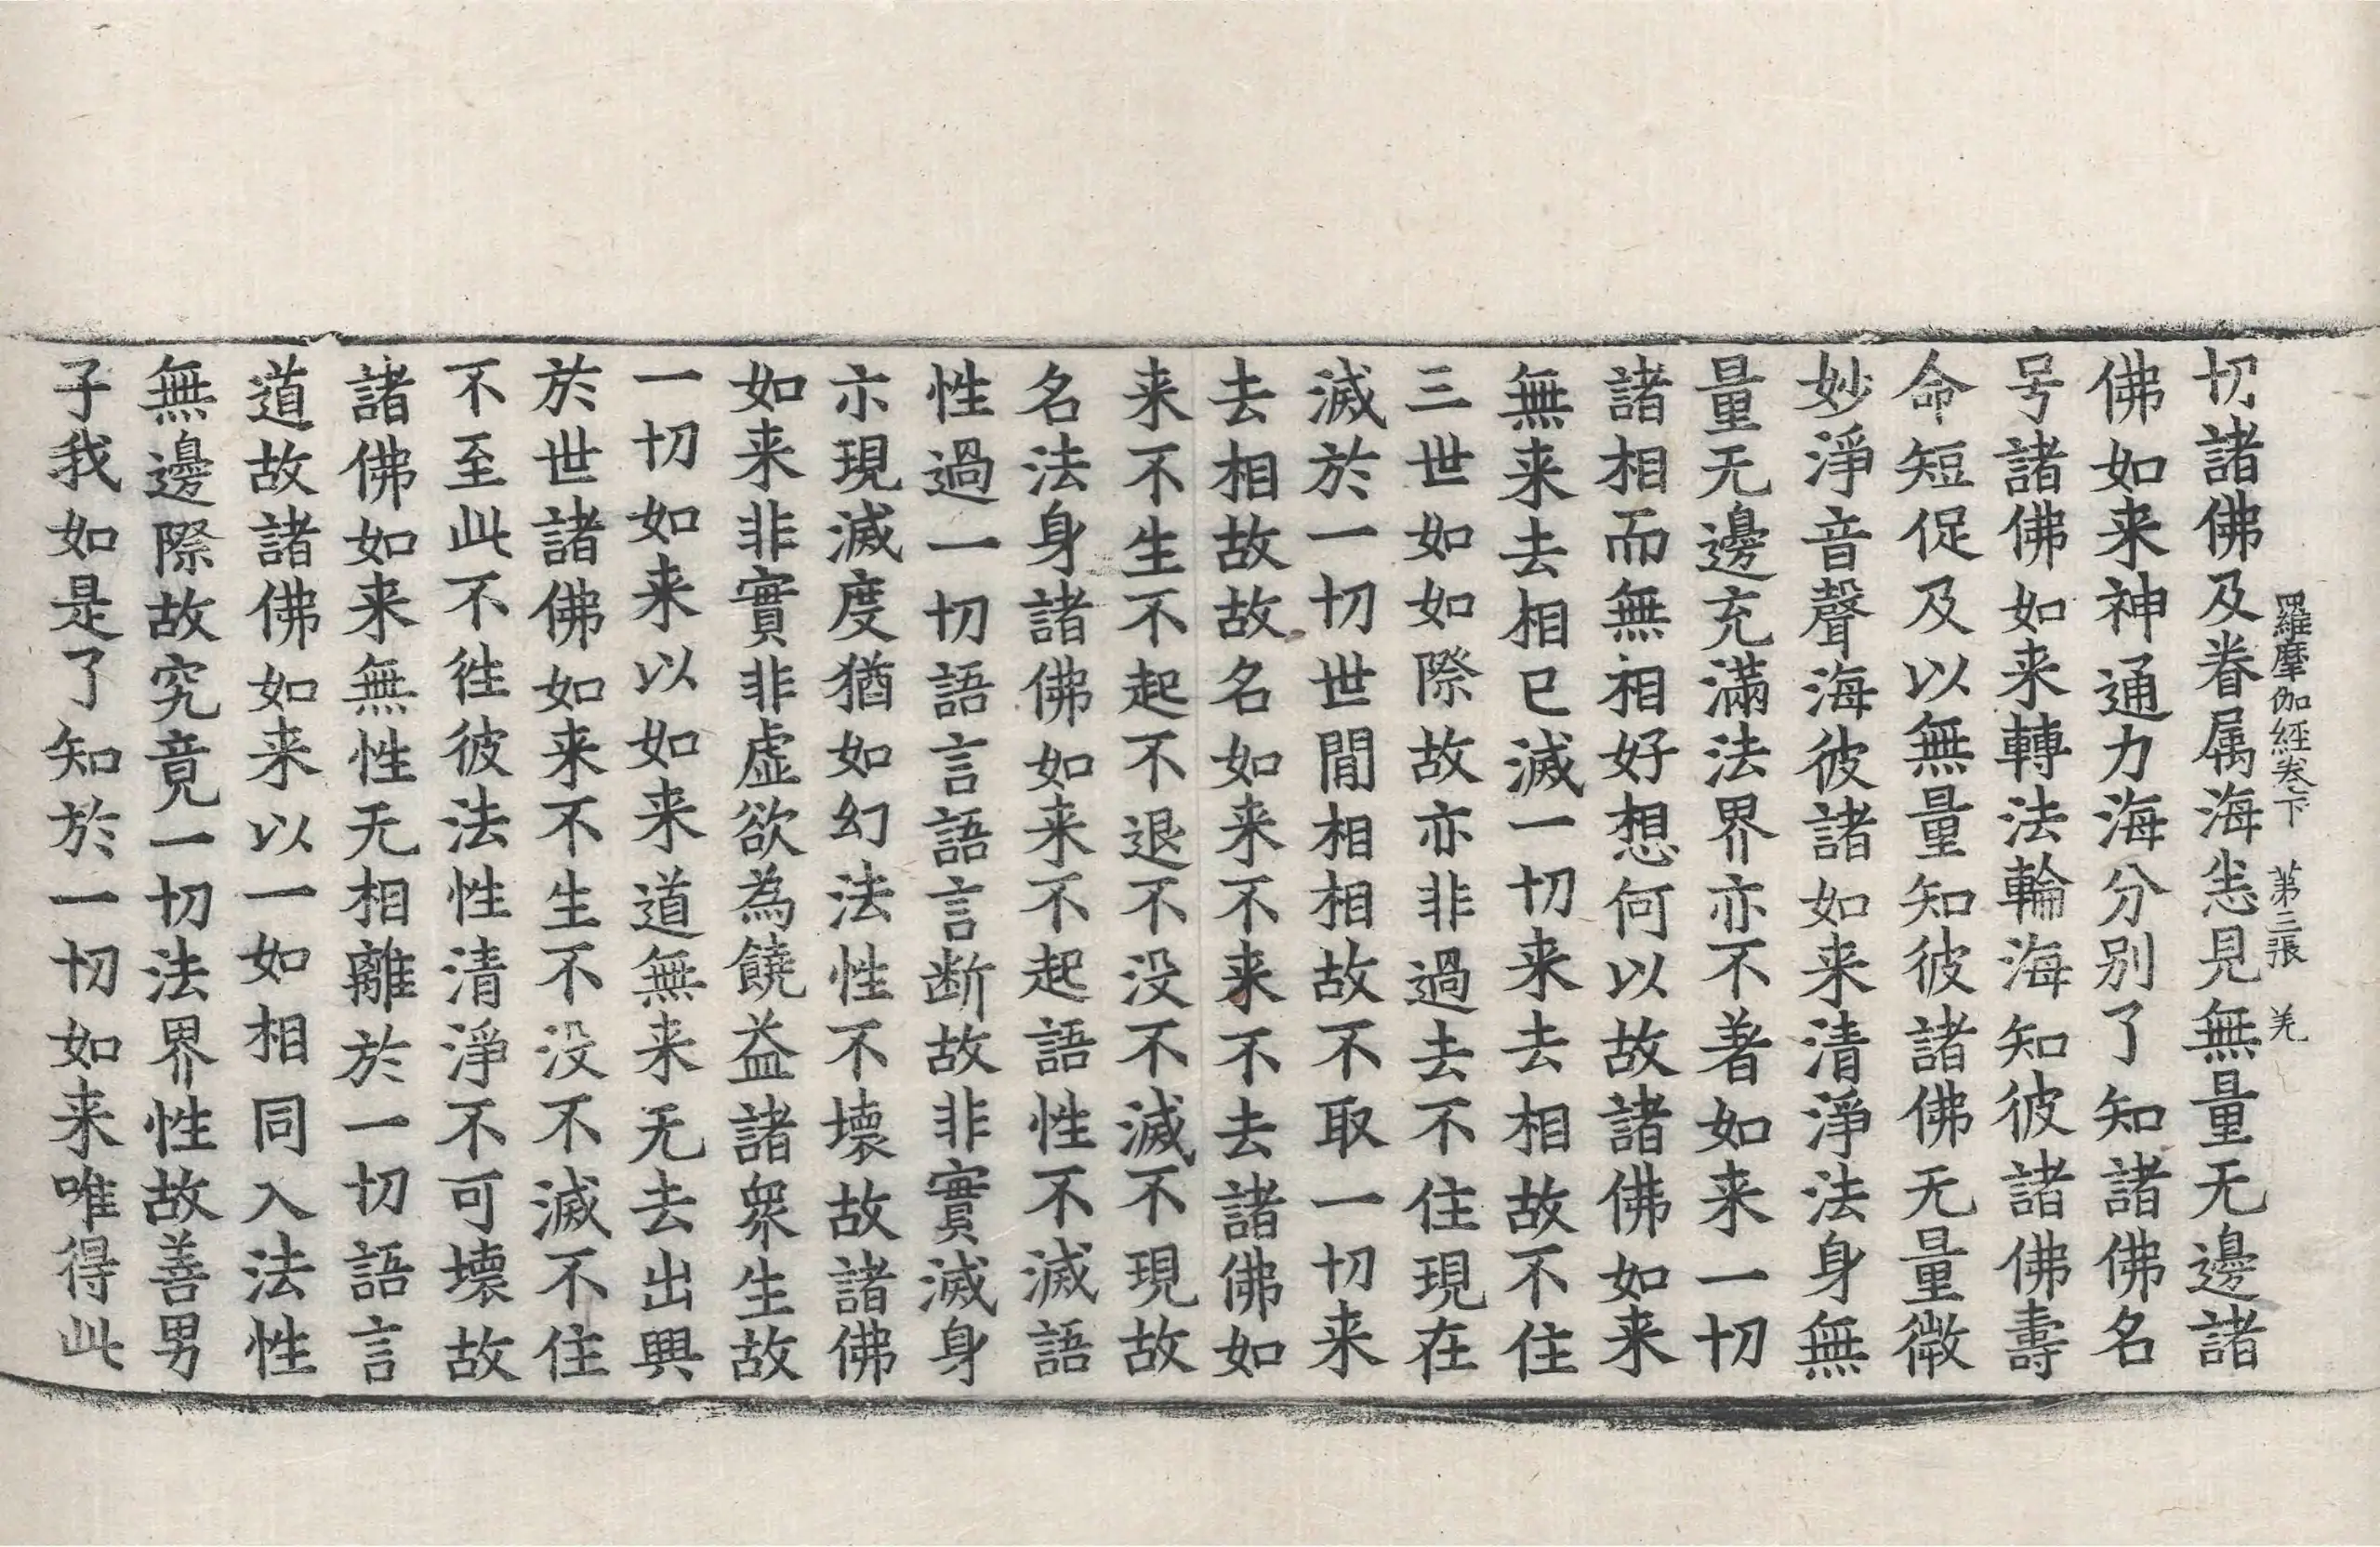 羅摩伽經卷下　第三張　羌
切諸佛及眷属海恙見無量无邊諸
佛如来神通力海分別了知諸佛名
号諸佛如来轉法輪海知彼諸佛壽
命短促及以無量知彼諸佛无量微
妙淨音聲海彼諸如来清淨法身無
量无邊充滿法界亦不著如来一切
諸相而無相好想何以故諸佛如来
無来去相已滅一切来去相故不住
三世如如際故亦非過去不住現在
滅於一切世間相相故不取一切来
去相故故名如来不来不去諸佛如
来不生不起不退不没不滅不現故
名法身諸佛如来不起語性不滅語
性過一切語言語言断故非實滅身
亦現滅度猶如幻法性不壞故諸佛
如来非實非虚欲為饒益諸衆生故
一切如来以如来道無来无去出興
於世諸佛如来不生不没不滅不住
不至此不徃彼法性清淨不可壞故
諸佛如来無性无相離於一切語言
道故諸佛如来以一如相同入法性
無邊際故究竟一切法界性故善男
子我如是了知於一切如来唯得此